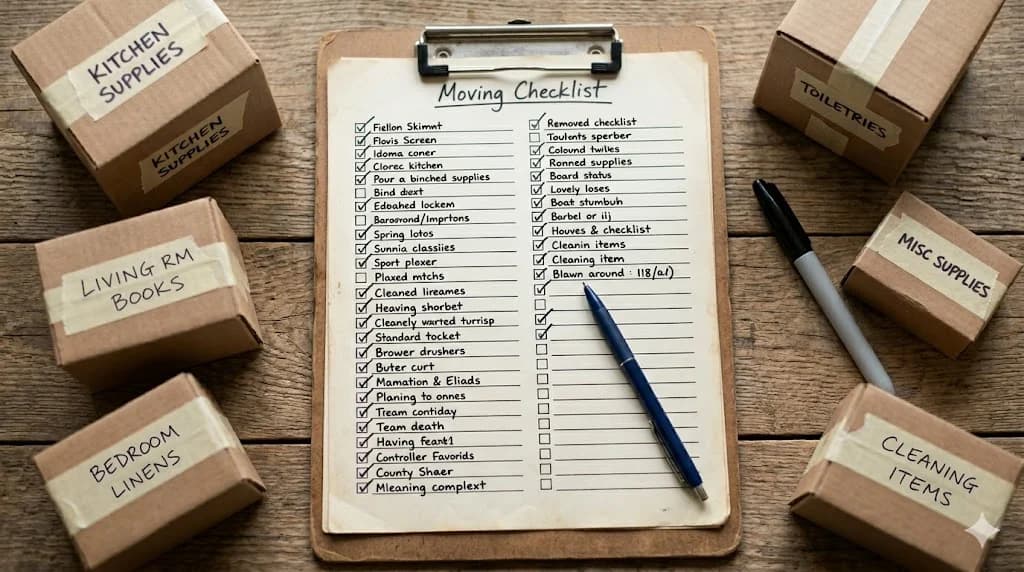 KITCHEN SUPPLIES
KITCHEN SUPPLIES
LIVING RM
BOOKS
BEDROOM
LINENS
Moving Checklist
Fiellon Skimnt
Flovis Screen
Idoma coner
Clorec kitchen
Pour a binched supplies
Bind dext
Edoahed lockem
Baroorond/Imprtons
Spring lotos
Sunnia classiies
Sport plexer
Plaxed mtchs
Cleaned lireames
Heaving shorbet
Cleanely warted turrisp
Standard tocket
Brower drushers
Buter curt
Mamation & Eliads
Planing to onnes
Tream contiday
Team death
Having feant1
Controller Favorids
County Shaer
Mleaning complext
Removed checklist
Toulents sperber
Colound twlles
Ronned supplies
Board status
Lovely loses
Boat stumbuh
Barbel or ilj
Houves & checklist
Cleanin items
Cleaning item
Blawn around : 118/a1)
TOILETRIES
MISC SUPPLIES
CLEANING
ITEMS